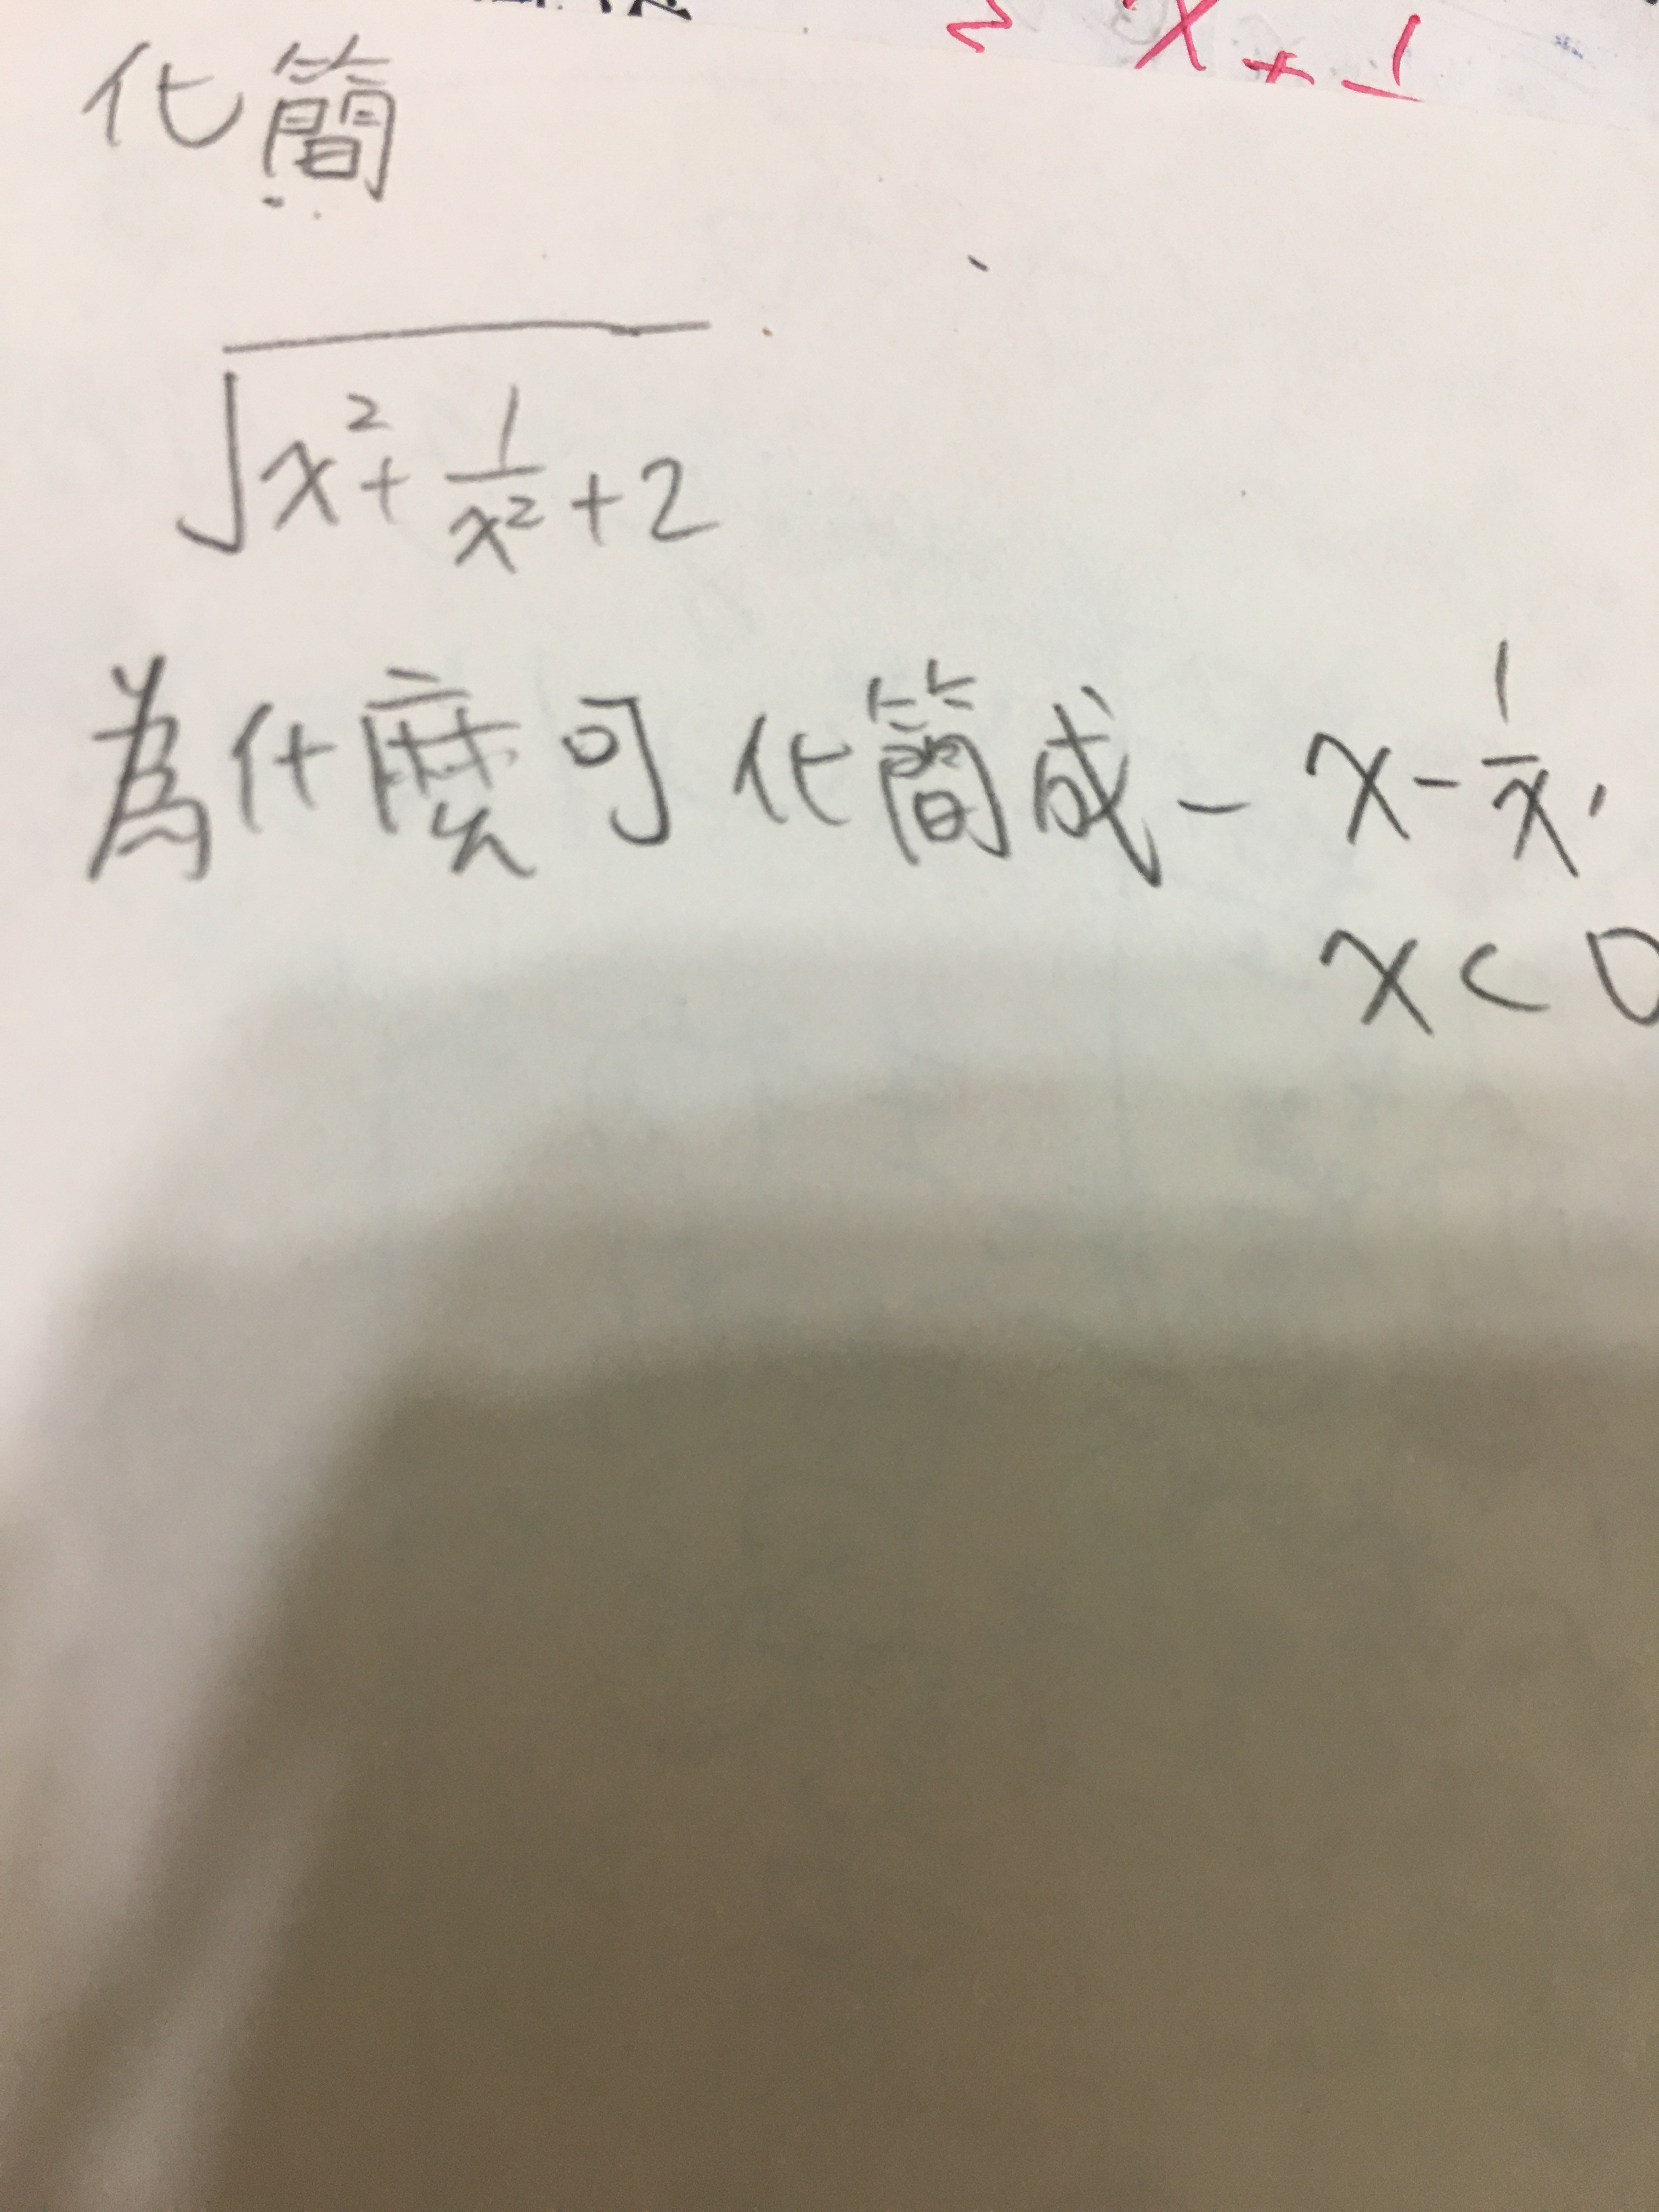 x + 1
化簡
√(x² + 1/x² + 2)
為什麼可化簡成 - x - 1/x,
x < 0